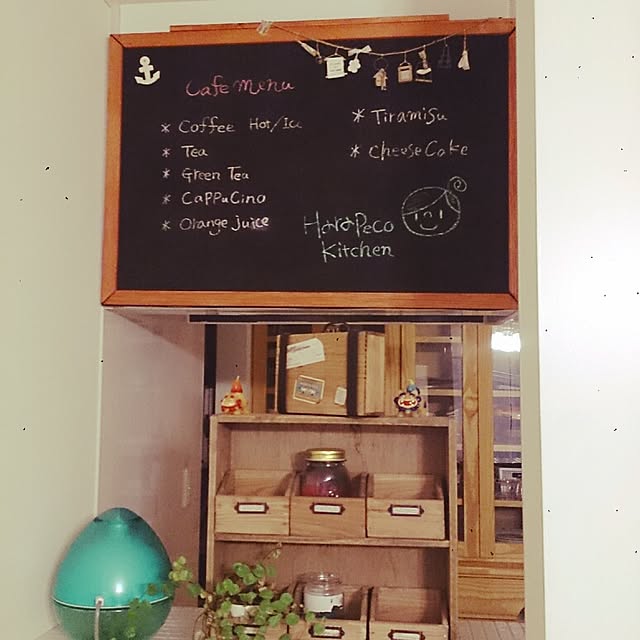 Cafe Menu
* Coffee Hot/Ice
* Tea
* Green Tea
* CaPPuCino
* Orange juice
* Tiramisu
* CheeseCake
HaraPeco
Kitchen